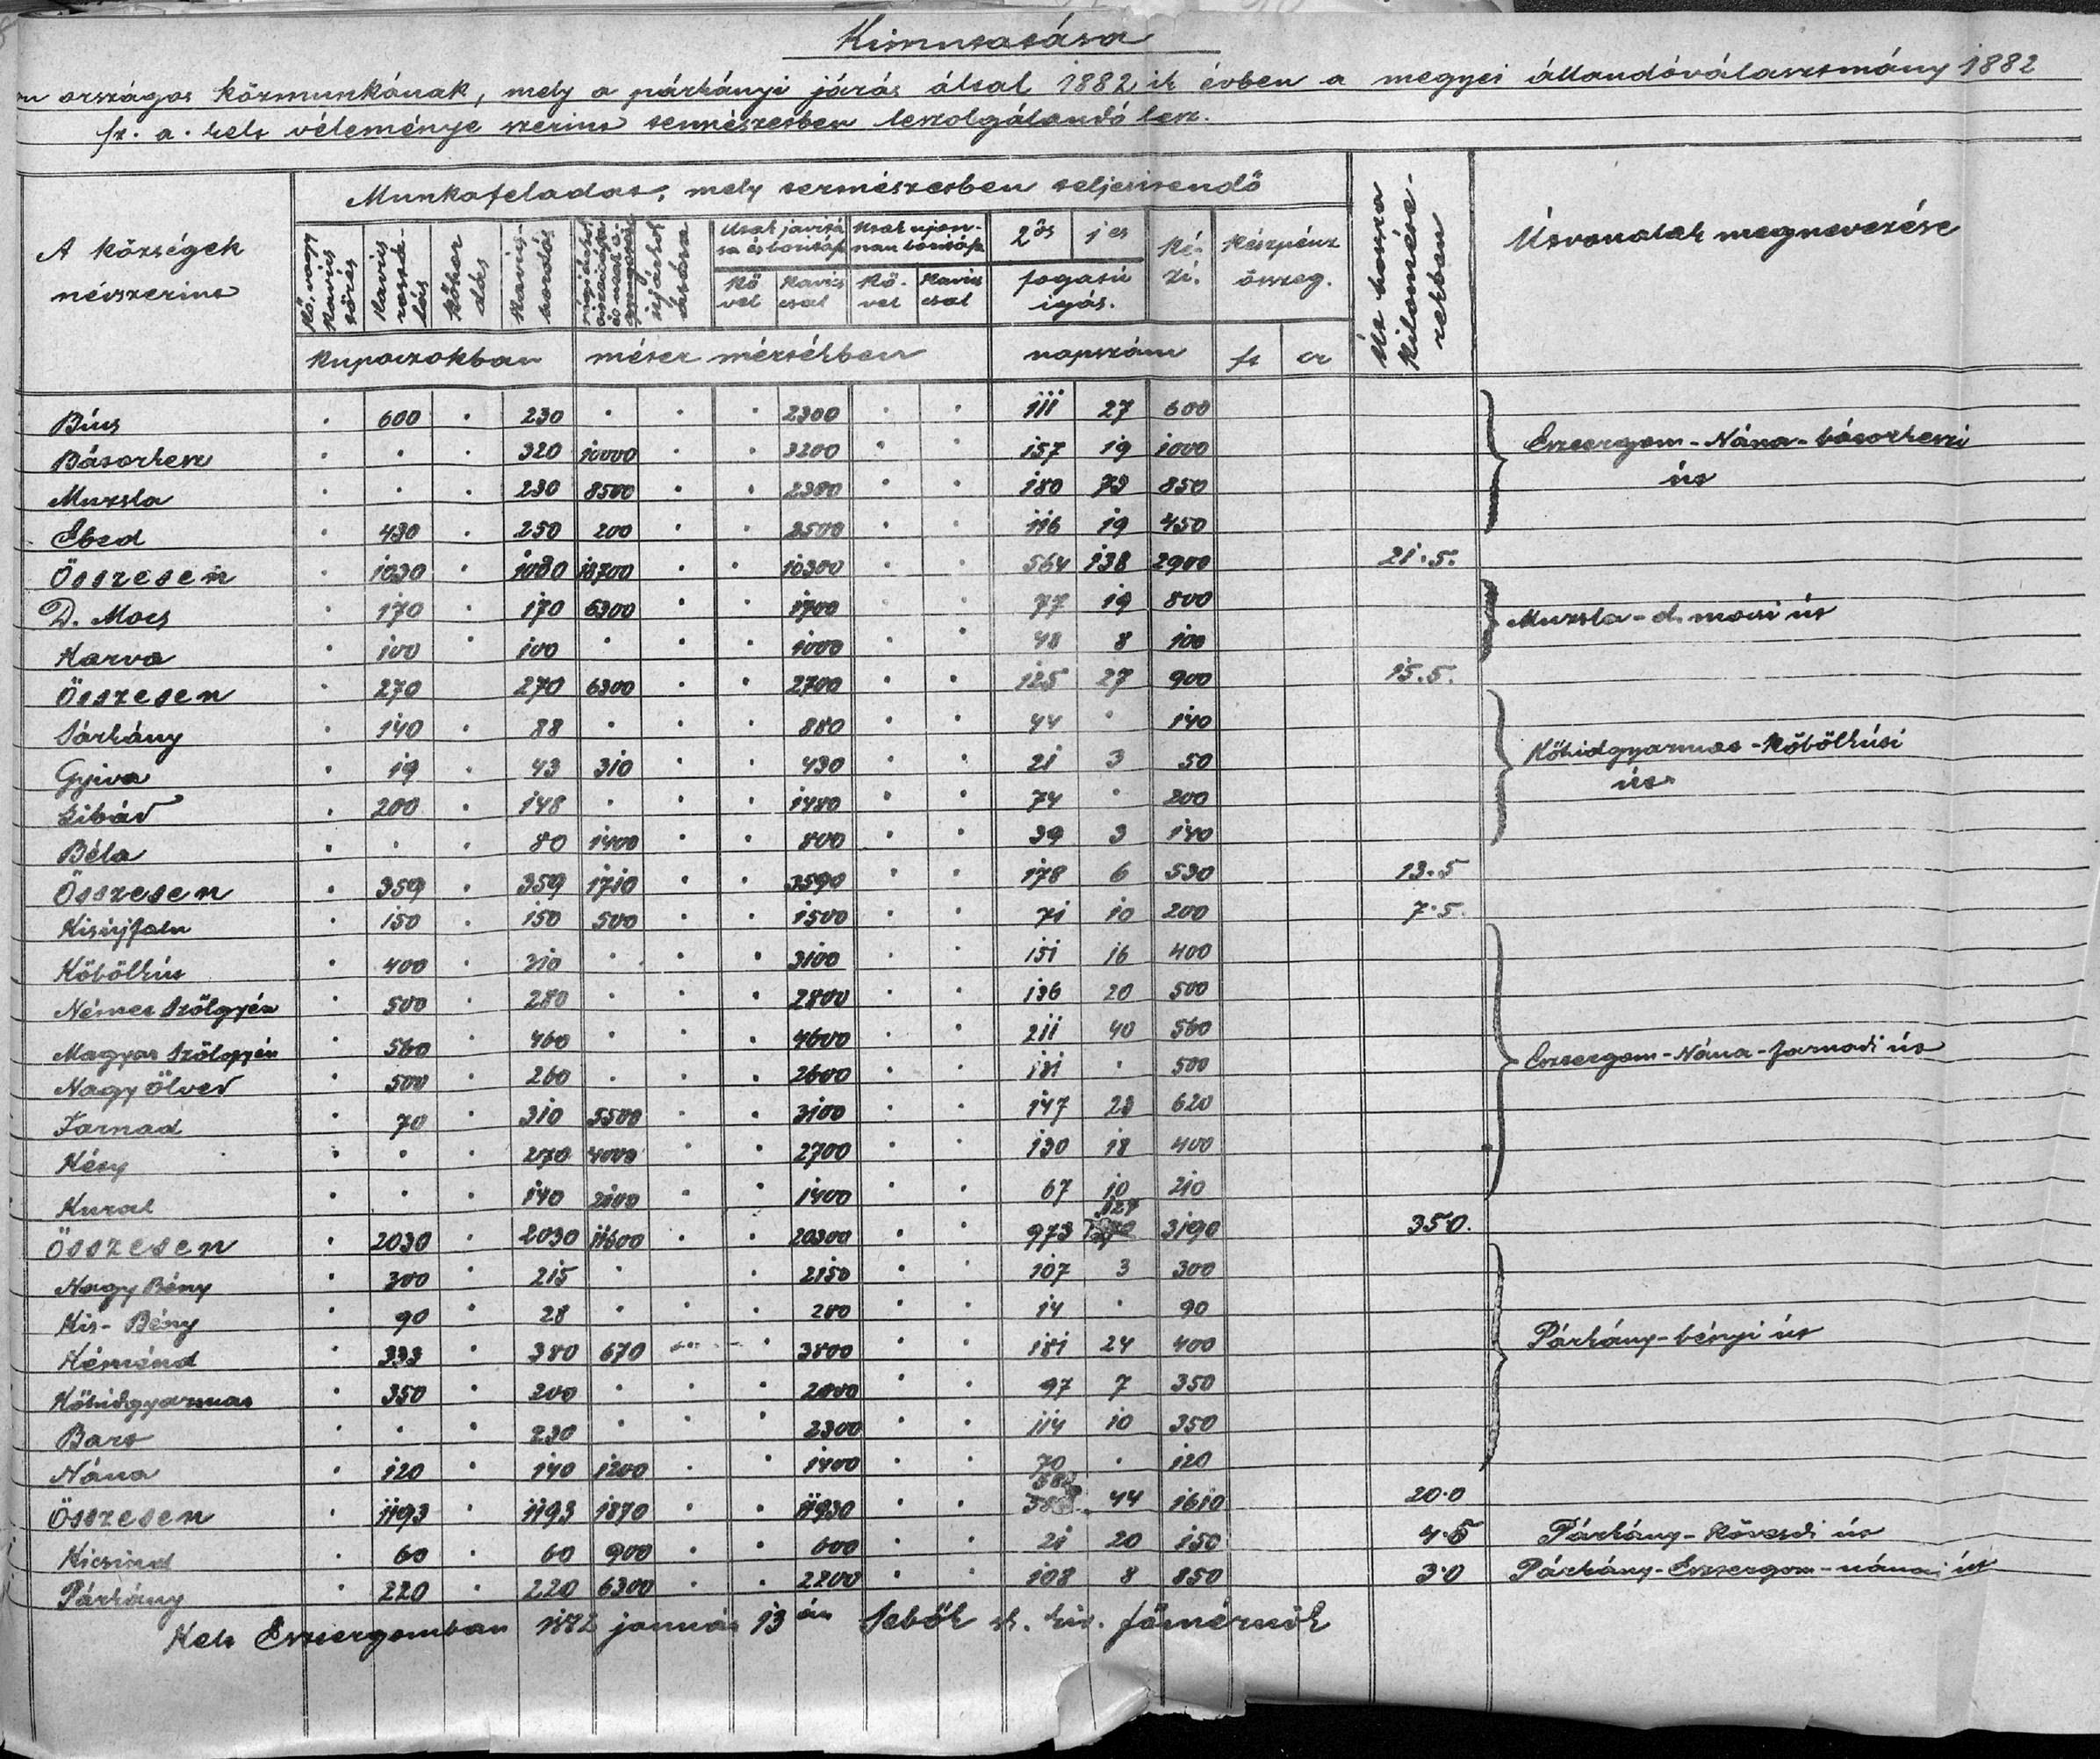 Kimutatása
országos közmunkának, mely a párkányi járás által 1882 ik évben a megyei állandóválasztmány 1882
sz. a. kelt véleménye szerint természetben leszolgálandó lesz.
A községek névszerint
Munkafeladat, mely természetben teljesitendő
Út hossza kilométerekben
Útvonalak megnevezése
Kő vagy kavics törés
Kavics rostálás
Kőhordás
Kavics hordás
Utak javitása és boritása
Utak ujonnan boritása
2ös
1es
Kézi
Készpénz összeg.
Kővel
Kavicscsal
Kővel
Kavicscsal
fogatú igás.
kupaczokban
méter mérték­ben
napszám
ft
cr
Bút · 600 · 230 · · · 2300 · · 111 27 600
Bátorkesz · · · 320 10000 · · 3200 · · 157 19 1000
Esztergom-Nána-bátorkeszi út
Muzsla · · · 230 8500 · · 2300 · · 180 73 850
Ebed · 430 · 250 200 · · 2500 · · 116 19 450
Összesen · 1030 · 1030 18700 · · 10300 · · 564 138 2900 21.5.
D. Mocs · 170 · 170 6300 · · 1700 · · 77 19 800
Muzsla-d. mocsi út
Karva · 100 · 100 · · · 1000 · · 48 8 100
Összesen · 270 270 6300 · · 2700 · · 125 27 900 15.5.
Sárkány · 140 · 88 · · · 880 · · 44 · 140
Gyiva · 19 · 43 310 · · 430 · · 21 3 50
Kőhidgyarmat-Köbölkúti út
Libád · 200 · 148 · · · 1480 · · 74 · 200
Béla · · · 80 1400 · · 800 · · 39 3 140
Összesen · 359 · 359 1710 · · 3590 · · 178 6 530 13.5
Kisújfalu · 150 · 150 500 · · 1500 · · 71 10 200 7.5.
Köbölkút · 400 · 310 · · · 3100 · · 151 16 400
Német Szőlgyén · 500 · 280 · · · 2800 · · 136 20 500
Magyar Szőlgyén · 560 · 460 · · · 4600 · · 211 40 560
Esztergom-Nána-farnadi út
Nagy Ölved · 500 · 260 · · · 2600 · · 131 · 500
Farnad · 70 · 310 5500 · · 3100 · · 147 23 620
Kéty · · · 270 4000 · · 2700 · · 130 18 400
Kural · · · 140 2100 · · 1400 · · 67 10 210
Összesen · 2030 · 2030 11600 · · 20300 · · 973 127 3190 350.
Nagy Bény · 300 · 215 · · 2150 · · 107 3 300
Kis-Bény · 90 · 28 · · · 280 · · 14 · 90
Párkány-bényi út
Kéménd · 333 · 380 670 · · 3800 · · 181 24 400
Kőhidgyarmat · 350 · 200 · · · 2000 · · 97 7 350
Bart · · · 230 · · · 2300 · · 114 10 350
Nána · 120 · 140 1200 · · 1400 · · 70 · 120
Összesen · 1193 · 1193 1870 · · 11930 · · 583 44 1610 20.0
Kicsind · 60 · 60 900 · · 600 · · 21 20 150 4.5 Párkány-Kövesdi út
Párkány · 220 · 220 6300 · · 2200 · · 108 8 850 3.0 Párkány-Esztergom-nánai út
Kelt Esztergomban 1872 január 13 án Sebők sk. kir. főmérnök